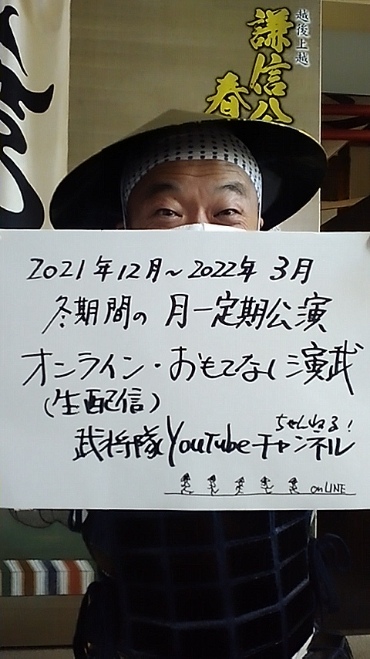 越後上越
謙信公
春
2021年12月~2022年3月
冬期間の月一定期公演
オンライン・おもてなし演武
(生配信)
ちゃんねる!
武将隊YouTubeチャンネル
on LINE